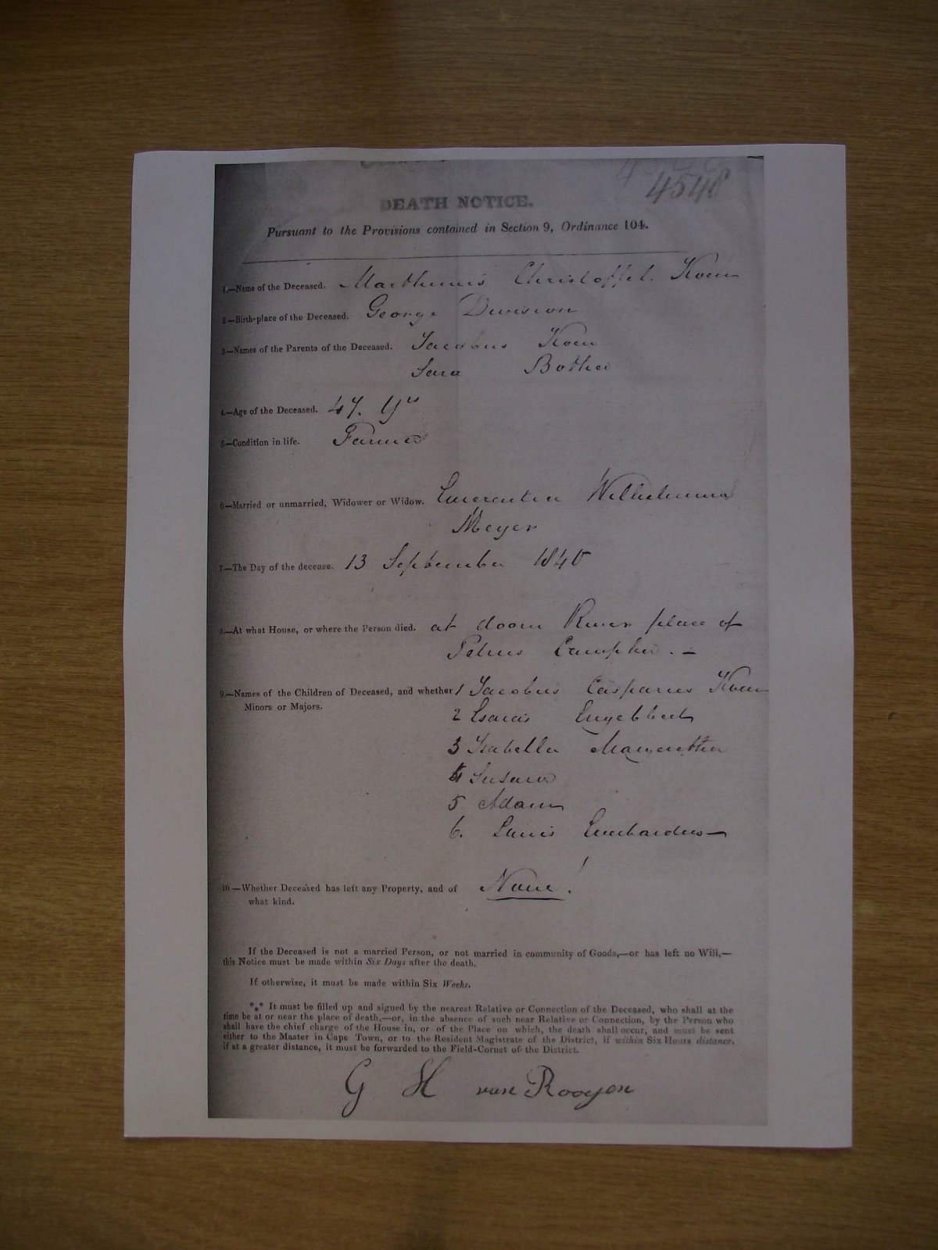 4548
DEATH NOTICE.
Pursuant to the Provisions contained in Section 9, Ordinance 104.
1.—Name of the Deceased. Marthinus Christoffel Koen
2—Birth-place of the Deceased. George Division
3—Names of the Parents of the Deceased. Jacobus Koen
Sara Botha
4—Age of the Deceased. 47. Yrs
5—Condition in life. Farmer
6—Married or unmarried, Widower or Widow. Wilhelmina
Meyer
7—The Day of the decease. 13 September
8—At what House, or where the Person died. at doorn River place of
Petrus
9—Names of the Children of Deceased, and whether 1 Jacobus Casparus Koen
Minors or Majors.
2 Engelbert
3 Isabella
4 Susara
5 Adam
6.
10—Whether Deceased has left any Property, and of None!
what kind.
If the Deceased is not a married Person, or not married in community of Goods,—or has left no Will,—
this Notice must be made within Six Days after the death.
If otherwise, it must be made within Six Weeks.
*,* It must be filled up and signed by the nearest Relative or Connection of the Deceased, who shall at the
time be at or near the place of death,—or, in the absence of such near Relative or Connection, by the Person who
shall have the chief charge of the House in, or of the Place on which, the death shall occur, and must be sent
either to the Master in Cape Town, or to the Resident Magistrate of the District, if within Six Hours distance.
if at a greater distance, it must be forwarded to the Field-Cornet of the District.
G H van Rooyen